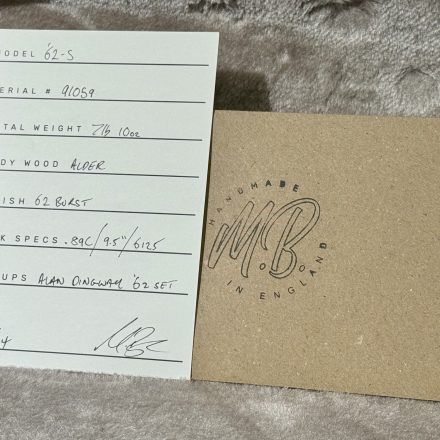 ODEL '62-S
ERIAL # 91059
TAL WEIGHT 7lb 10oz
DY WOOD ALDER
ISH 62 BURST
K SPECS .89C/9.5"/6125
UPS ALAN DINGWALL '62 SET
HANDMADE
MB
IN ENGLAND